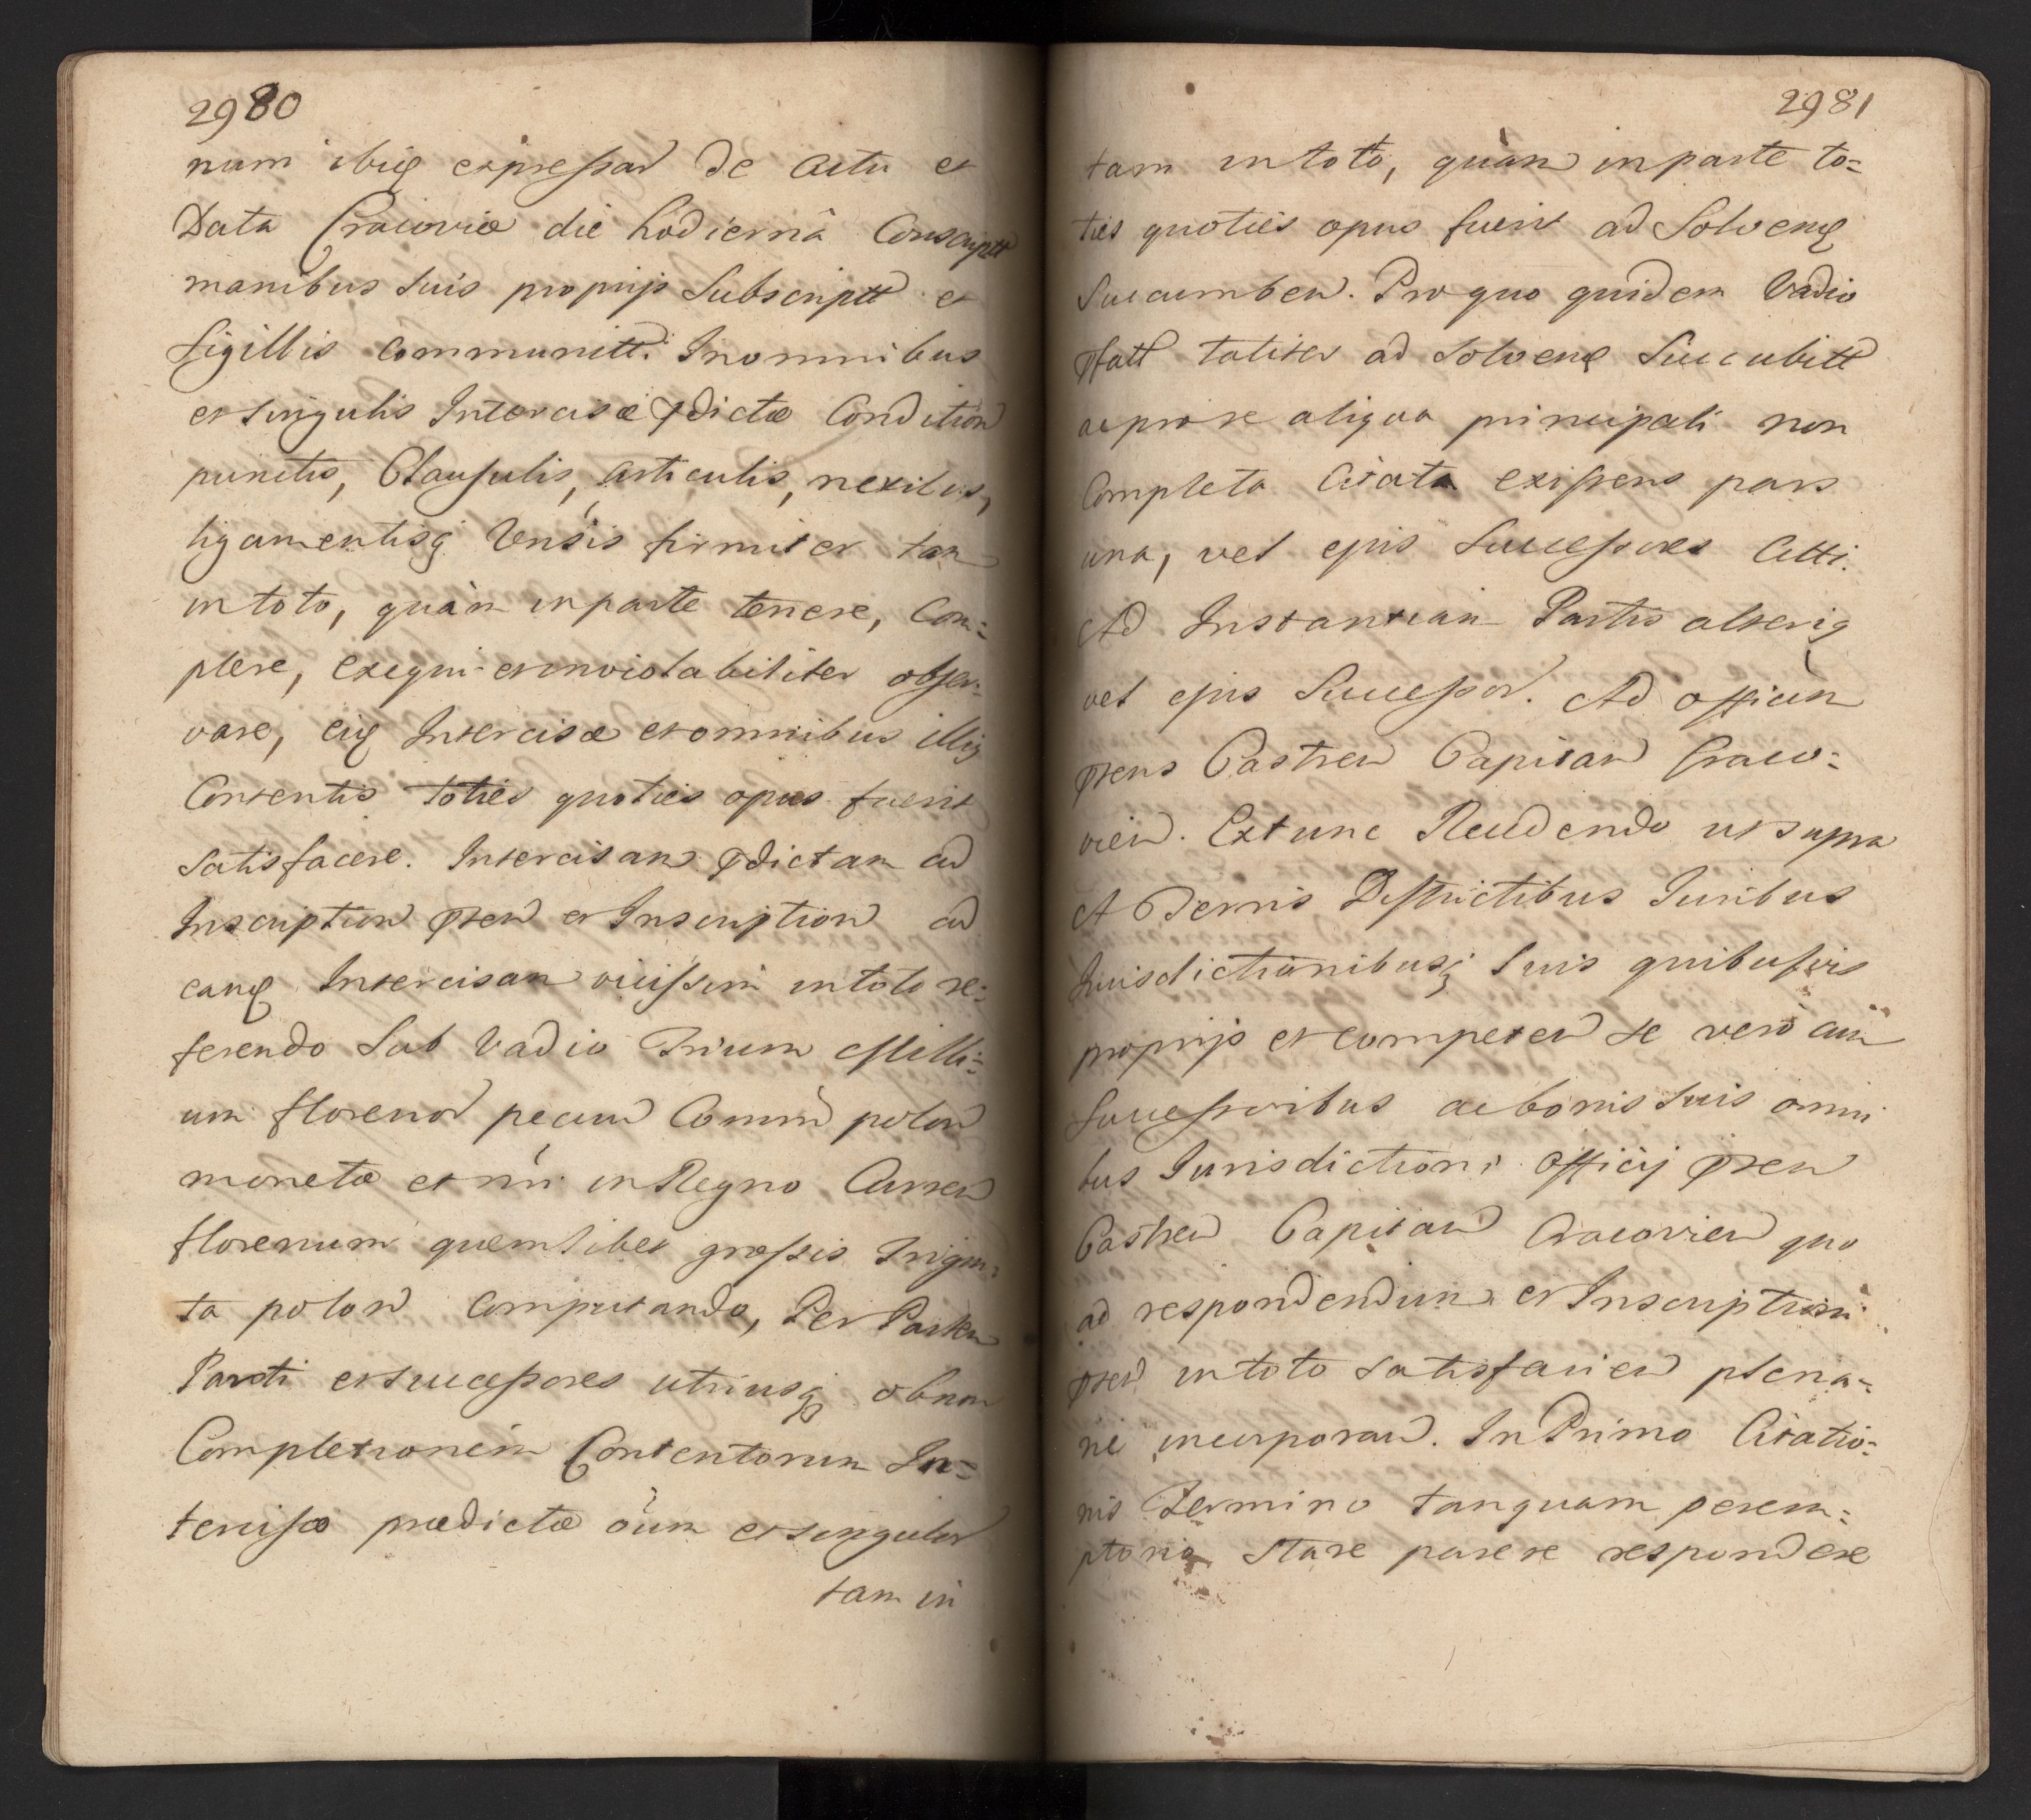 2980
num ibiq expressar de actu et
Data Cracoviæ die hodiernâ Conscriptt
manibus suis proprijs Subscriptt et
sigillis communitt. In omnibus
et singulis Intercisæ pdictæ Condition
punctis, Clausulis, articulis, nexibus,
ligamentisq Vensis firmiter tam
in toto, quàm in parte tenere, Com=
plere, exequi et inviolabiliter obser=
vare, eiq Intercisæ et omnibus illiq
Contentis toties quoties opus fuerit
satisfacere. Intercisam pdictam ad
Inscription pnten et Inscription ad
eamq Intercisam vicissim in toto re=
ferendo Sub Vadio Trium Milli=
um florenor pecun Comm polon
monetæ et nri in Regno Curren
florenum quemlibet grossis Trigin=
ta polon computando, Per Partem
Parti et successores utriusq ob non
Completionem Contentorum In=
tercisæ prædictæ oium et singulor
tam in
2981
tam in toto, quàm in parte to=
ties quoties opus fuerit ad Solvenq
Succumben. Pro quo quidem Vadio
pfatt taliter ad solvenq Succubitt
ac pro re aliqua principali non
Completa Citata existens pars
una, vel ejus Successores Citti.
Ad Instantiam Partis alteriq
vel ejus Successor. Ad officium
pntens Castren Capitan Craco=
vien. Extunc Recedendo ut supra
A Terris Districtibus Juribus
Jurisdictionibusq Suis quibusvis
proprijs et competen se vero cum
Successoribus ac bonis suis omni
bus Jurisdictioni officij pnten
Castren Capitan Cracovien quo
ad respondendum et Inscriptioni
pnten in toto satisfacien plena=
rie incorporan. In Primo Citatio=
nis Termino tanquam perem=
ptorio stare parere respondere